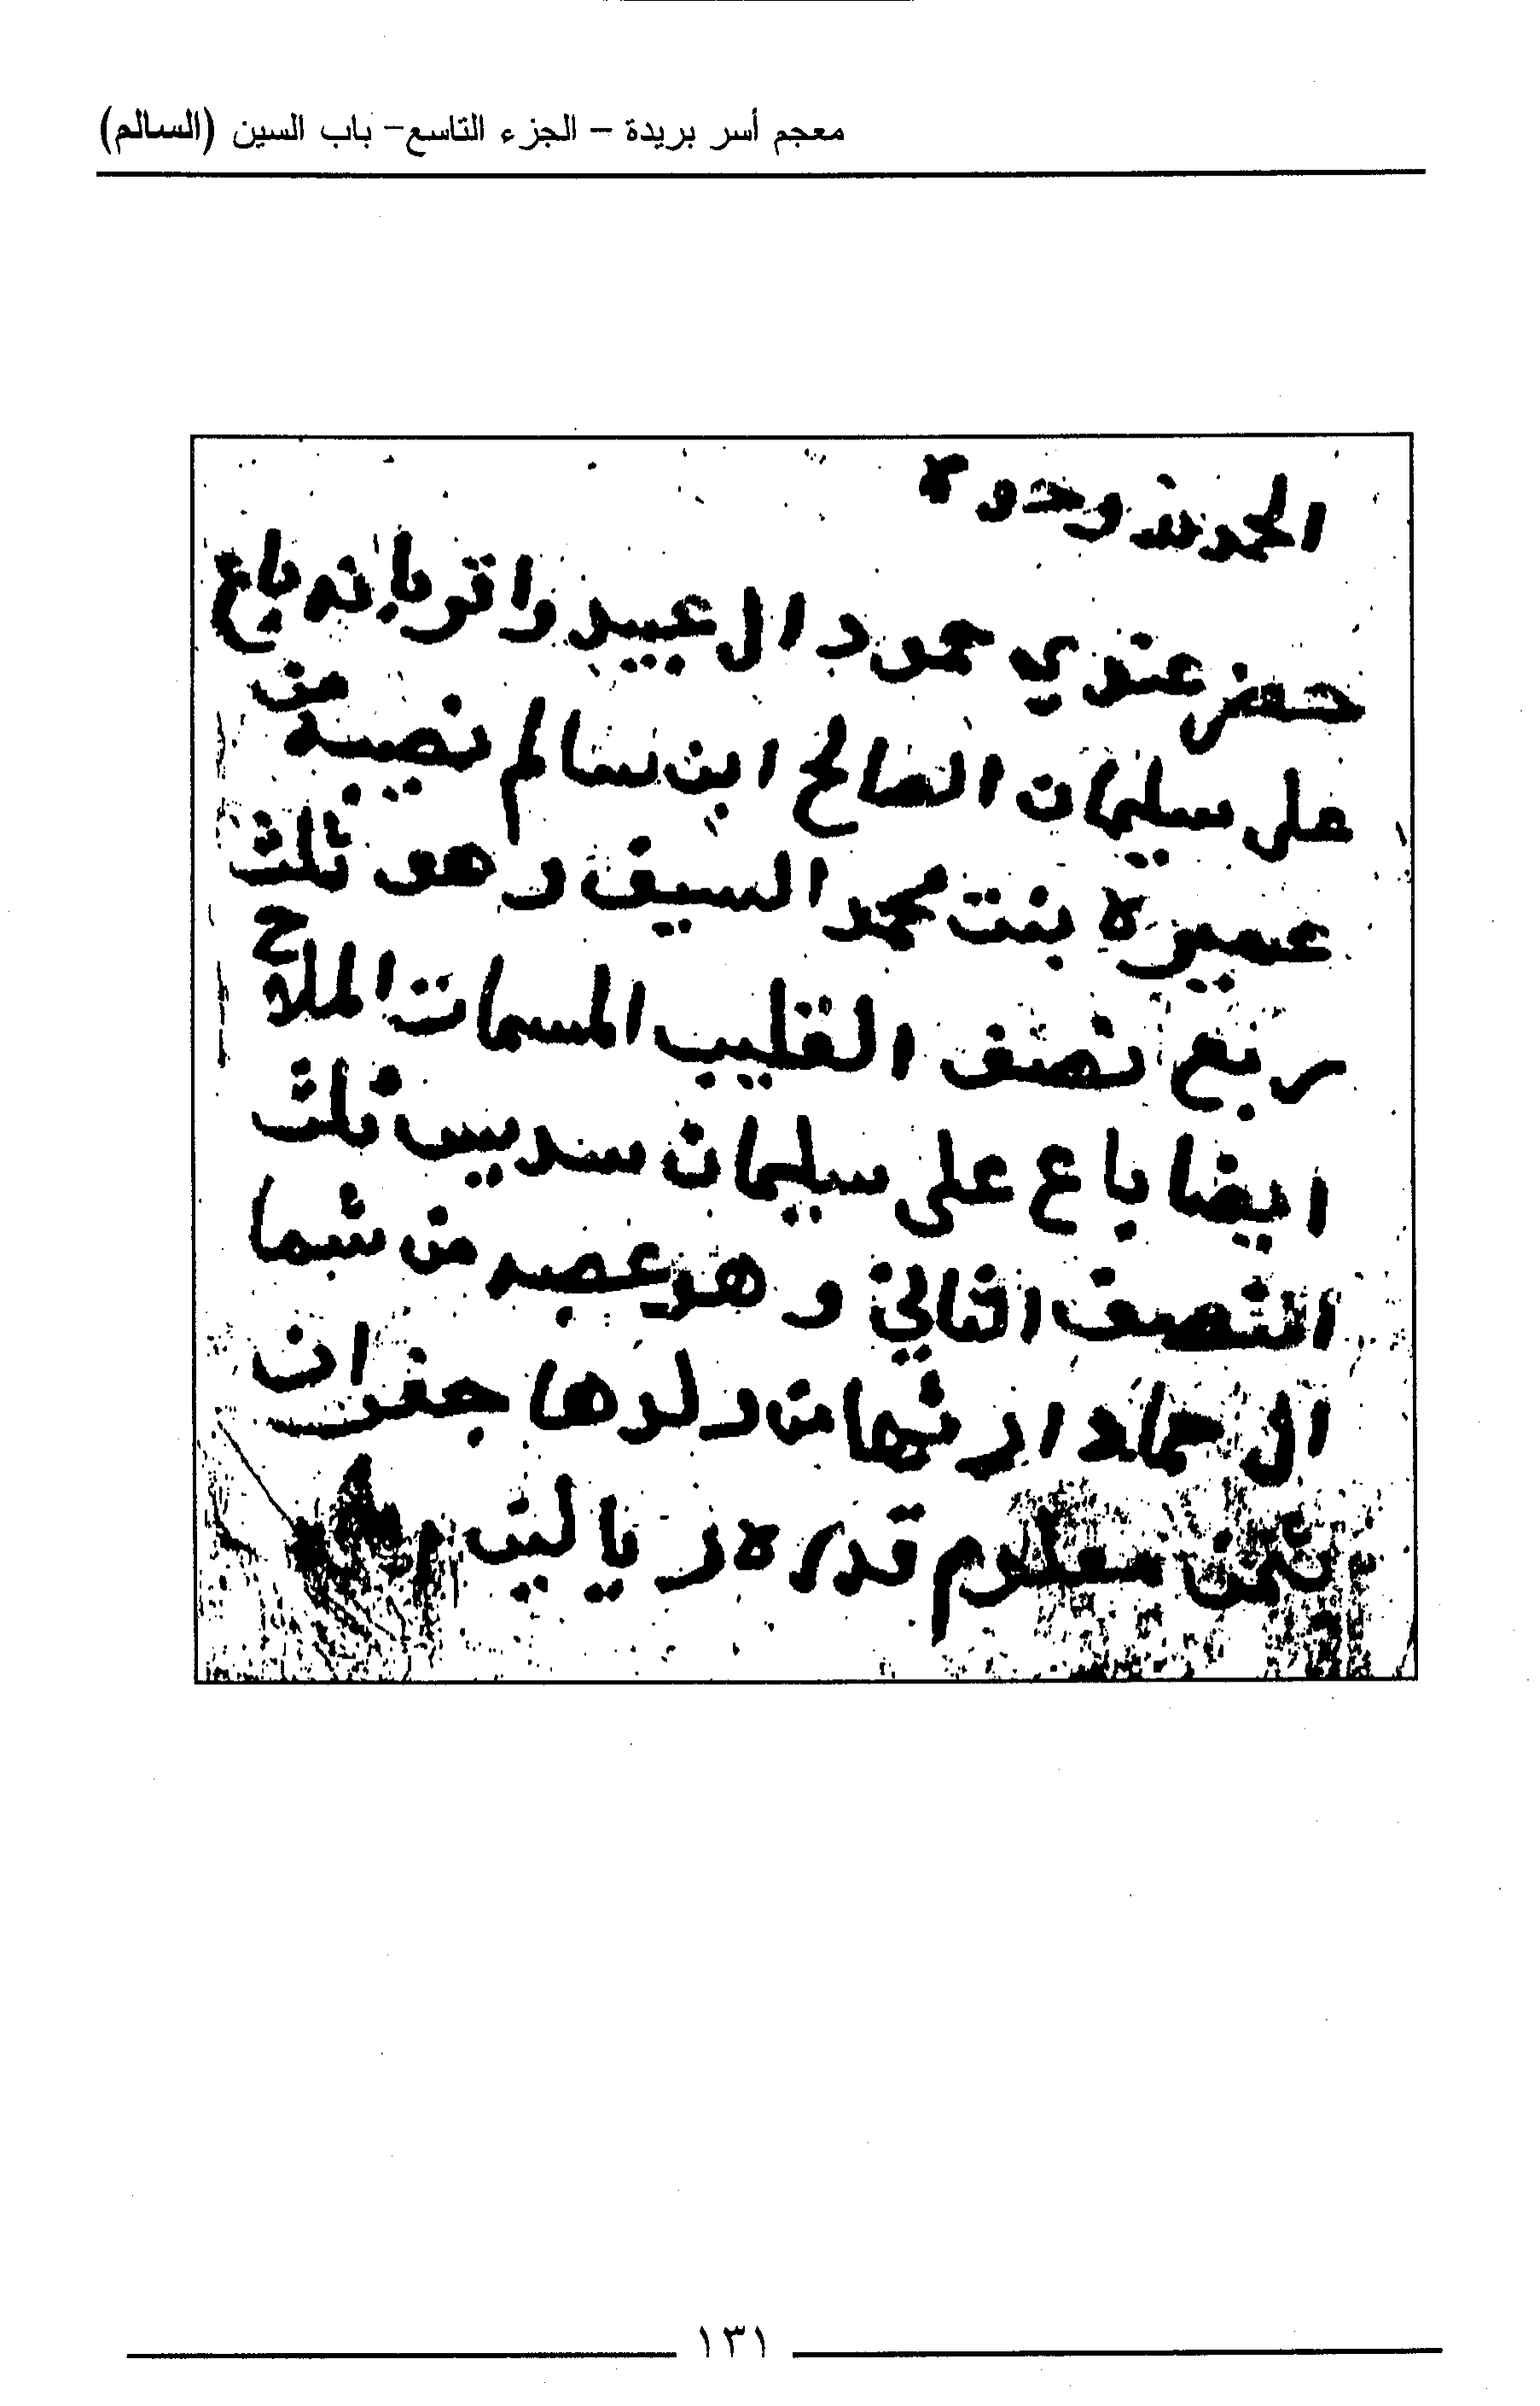 معجم أسر بريدة – الجزء التاسع– باب السين (السالم)
الحمد لله وحده
حضر عندي حمود ال عبيد واقر بانه باع
على سليمان الصالح ابن سالم نصيبه من
عميره بنت محمد السيف وهو ثلث
ربع نصف القليب المسمات الملاح
ايضا باع على سليمان سديس ثلث
النصف الثاني وهو من شما
ال حماد دلوها جفران
بثمن معلوم قدره ريالين
١٣١